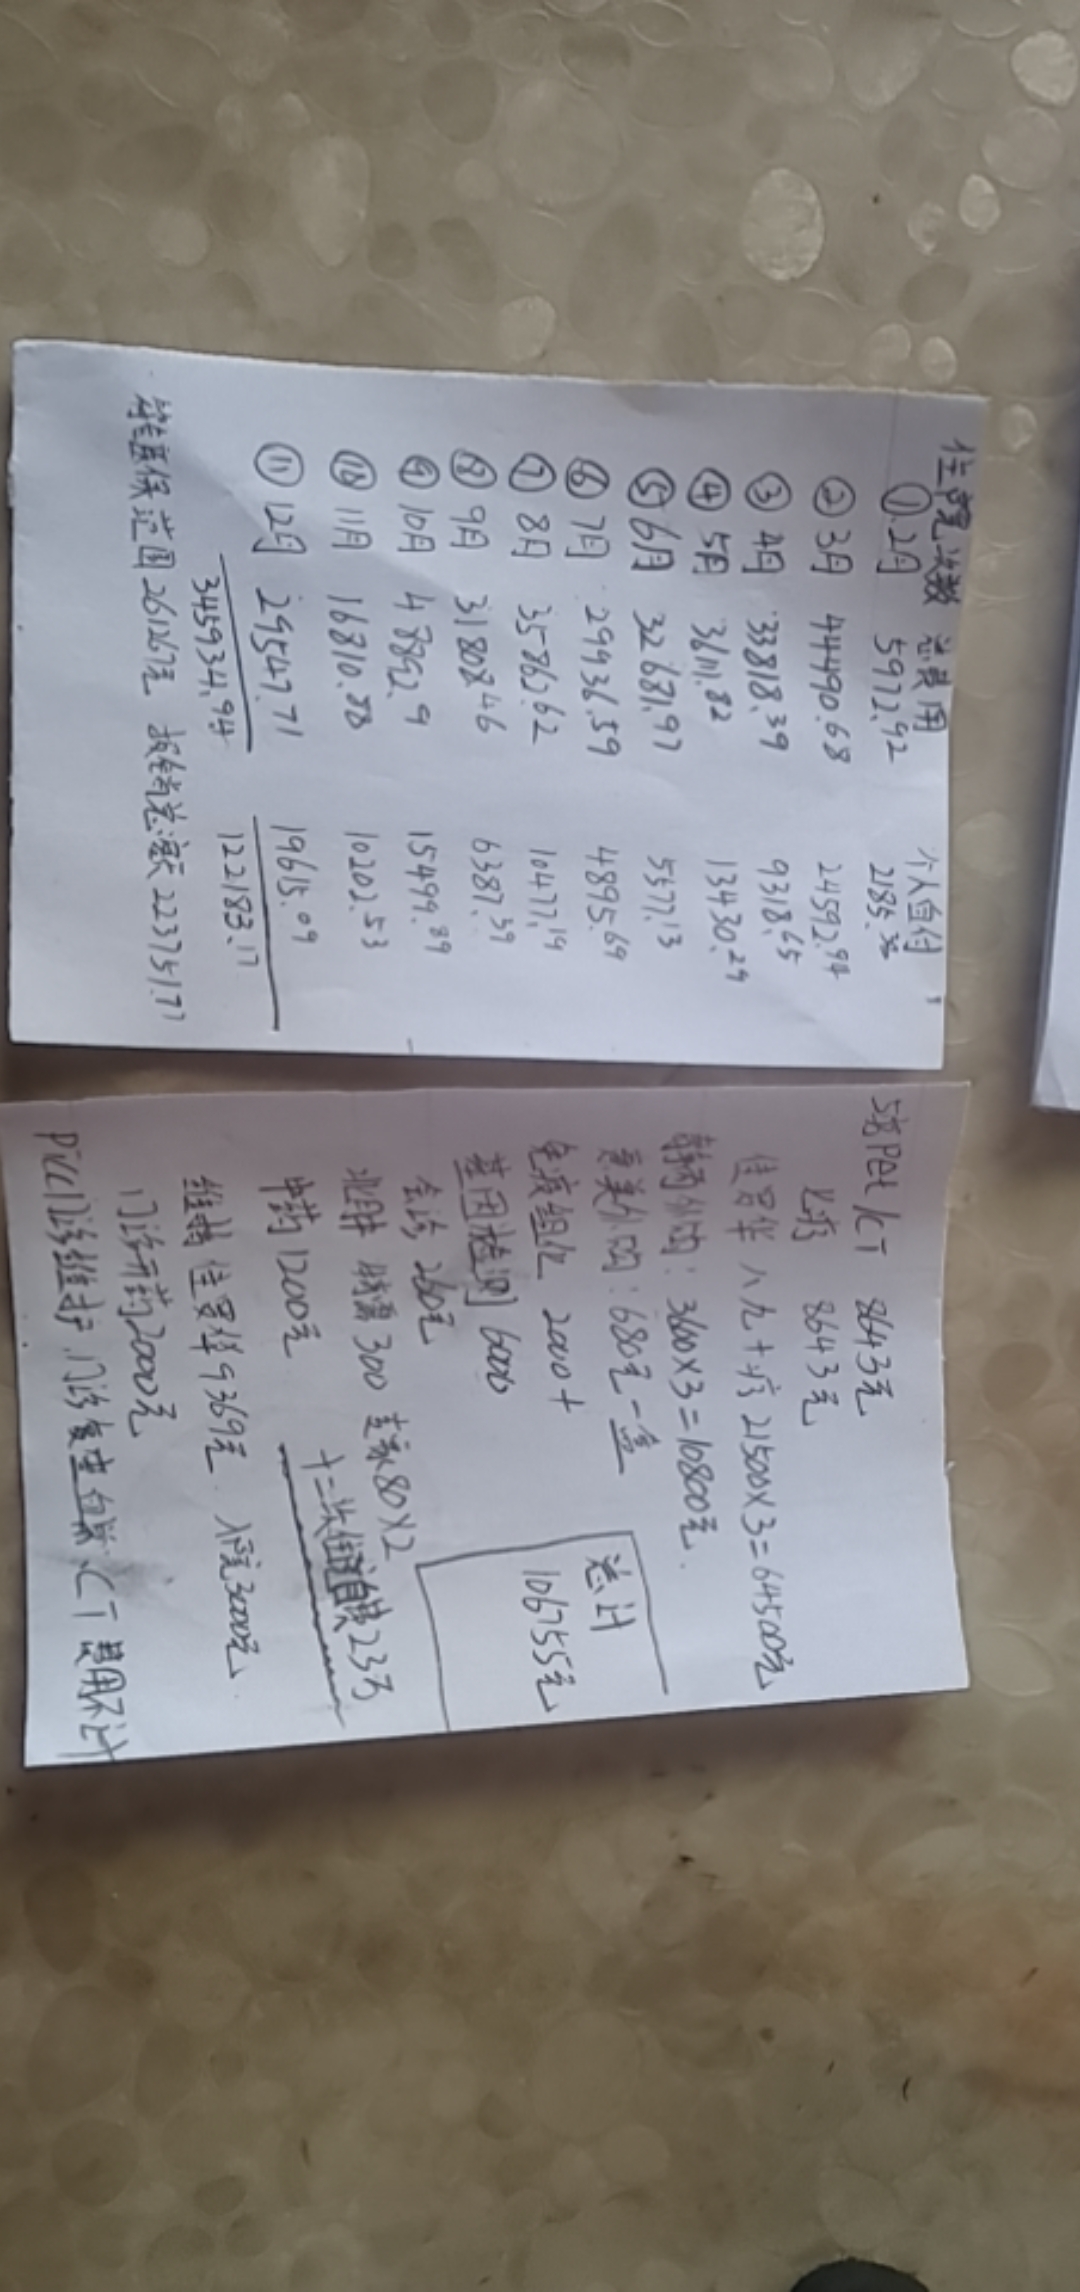 住院次数 总费用 个人自付
① 2月 5972.92 2185.32
② 3月 44490.68 24592.94
③ 4月 33818.39 9318.65
④ 5月 36111.82 13430.29
⑤ 6月 32681.97 5577.13
⑥ 7月 29936.59 4895.69
⑦ 8月 35862.62 10477.19
⑧ 9月 31808.46 6387.39
⑨ 10月 48892.9 15499.89
⑩ 11月 16810.88 10202.53
⑪ 12月 29547.71 19615.09
345934.94 122183.17
医保范围261267元 报销总额223751.77
PET/CT 8643元
化疗 8643元
佳罗华 八九+疗 21500×3=64500元
外购:3600×3=10800元.
意美外购:680元一盒
免疫组化 2000+
基因检测 6000
会诊 260元
北肿 挂号300 专家80×2
中药1200元
总计
106755元
十二次住院自费23万
维持 佳罗华9369元. 住院3000元.
门诊开药2000元
PICC门诊维护.门诊复查血常.CT费用不计